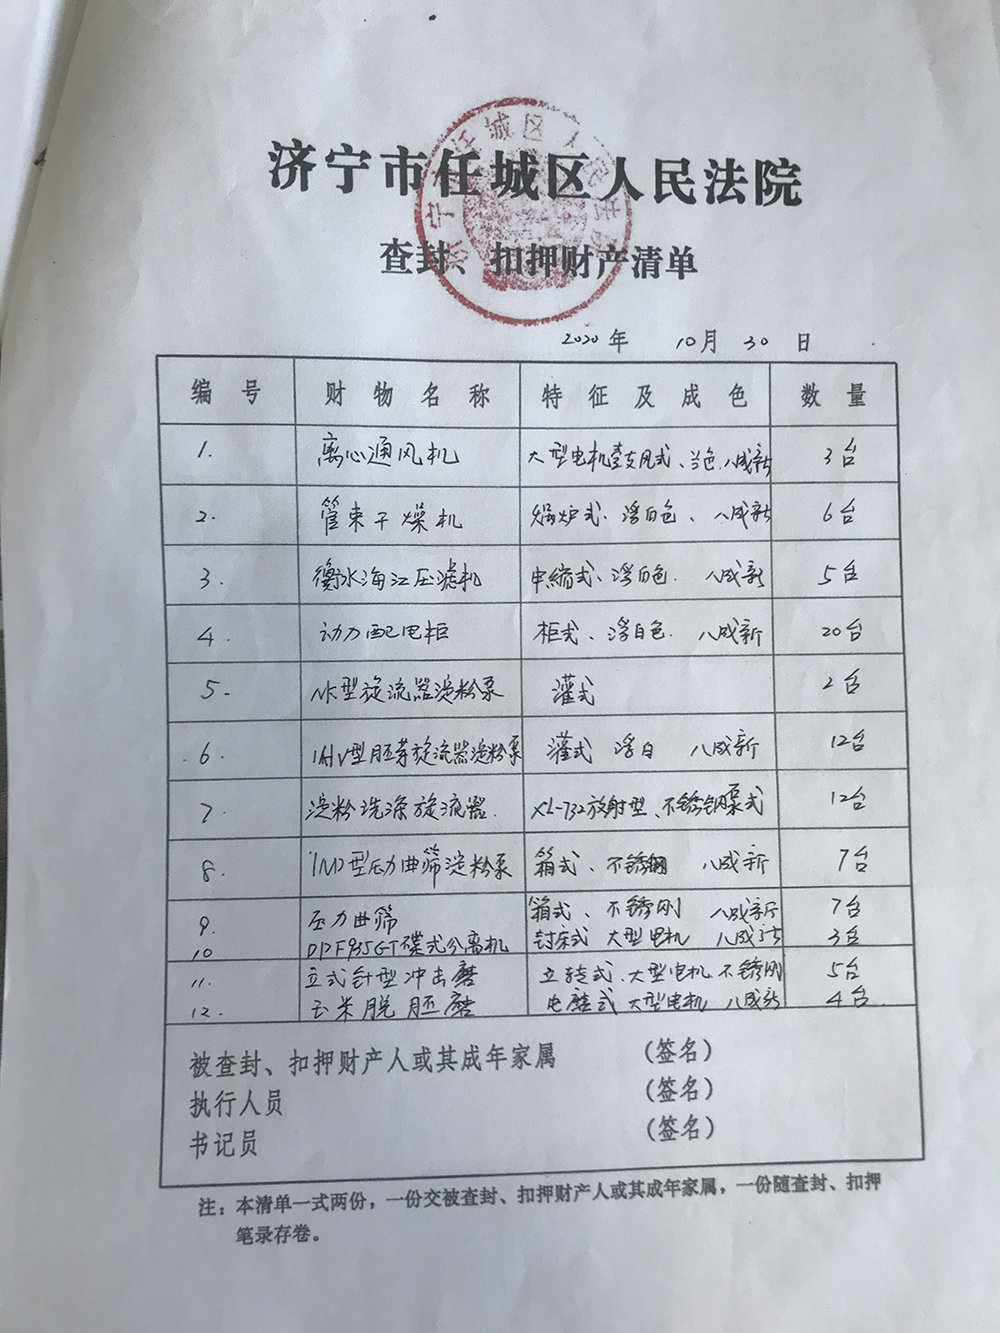 济宁市任城区人民法院
查封、扣押财产清单
2020年 10月 30日
编号 财物名称 特征及成色 数量
1. 离心通风机 大型电机 八成新 3台
2. 管束干燥机 锅炉式、浮白色、八成新 6台
3. 衡水海江压滤机 浮白色. 八成新 5台
4. 动力配电柜 柜式、浮白色. 八成新 20台
5. 型旋流器淀粉泵 灌式 2台
6. 型胚芽旋流器淀粉泵 灌式 浮白 八成新 12台
7. 淀粉洗涤旋流器. XL-732放射型、不锈钢泵式 12台
8. 型压力曲筛淀粉泵 箱式、不锈钢 八成新 7台
9. 压力曲筛 箱式、不锈刚 八成新 7台
10 碟式分离机 大型电机 八成新 3台
11. 立式针型冲击磨 立转式、大型电机 不锈刚 5台
12. 玉米脱胚磨 电磨式 大型电机 八成新 4台
被查封、扣押财产人或其成年家属 (签名)
执行人员 (签名)
书记员 (签名)
注：本清单一式两份，一份交被查封、扣押财产人或其成年家属，一份随查封、扣押
笔录存卷。